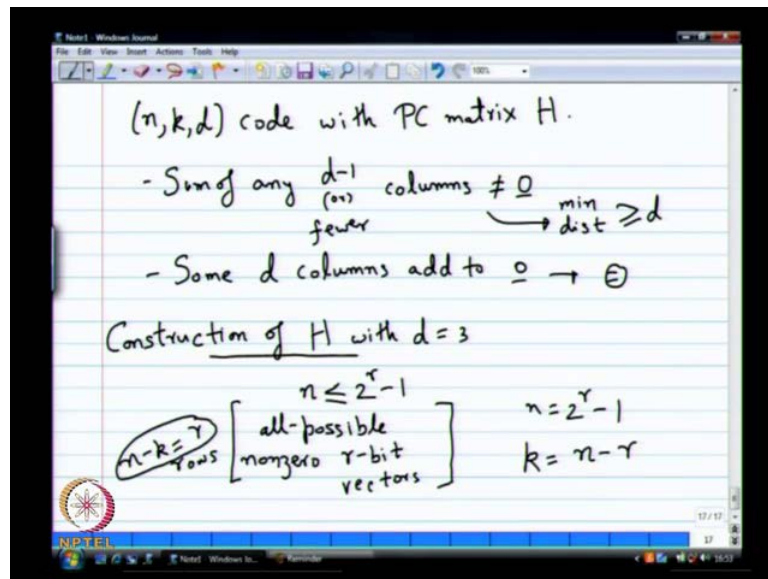 Note1 - Windows Journal
File Edit View Insert Actions Tools Help
100%
(n,k,d) code with PC matrix H.
- Sum of any d-1 (or) fewer columns ≠ 0 → min dist ≥ d
- Some d columns add to 0 → =
Construction of H with d = 3
n ≤ 2^r - 1
n-k = r rows [all-possible nonzero r-bit vectors]
n = 2^r - 1
k = n - r
17 / 17
17
NPTEL
Note1 - Windows Jo... Reminder
16:53